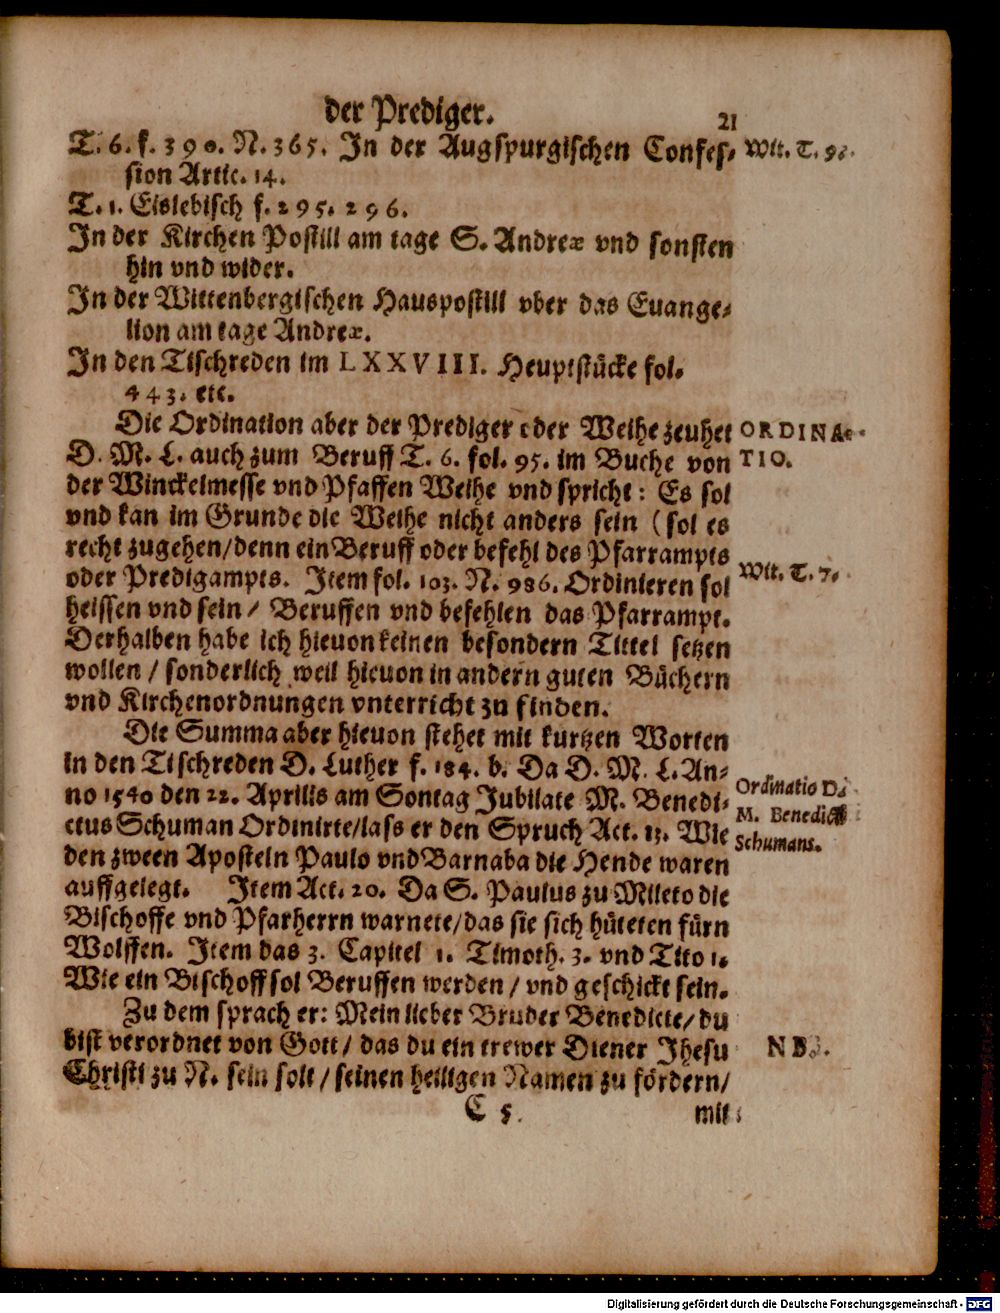 der Prediger. 21
T. 6. f. 390. N. 365. In der Augspurgischen Confes- Wit. T. 9.
sion Artic. 14.
T. 1. Eislebisch f. 295. 296.
In der Kirchen Postill am tage S. Andreæ vnd sonsten
hin vnd wider.
In der Wittenbergischen Hauspostill vber das Euange-
lion am tage Andreæ.
In den Tischreden im LXXVIII. Heuptstücke fol.
443. etc.
Die Ordination aber der Prediger oder Weihe zeuhet ORDINA-
D. M. L. auch zum Beruff T. 6. fol. 95. im Buche von TIO.
der Winckelmesse vnd Pfaffen Weihe vnd spricht: Es sol
vnd kan im Grunde die Weihe nicht anders sein (sol es
recht zugehen/denn ein Beruff oder befehl des Pfarrampts
oder Predigampts. Item fol. 103. N. 986. Ordinieren sol Wit. T. 7.
heissen vnd sein/ Beruffen vnd befehlen das Pfarrampt.
Derhalben habe ich hieuon keinen besondern Tittel setzen
wollen / sonderlich weil hieuon in andern guten Büchern
vnd Kirchenordnungen vnterricht zu finden.
Die Summa aber hieuon stehet mit kurtzen Worten
in den Tischreden D. Luther f. 184. b. Da D. M. L. An-
no 1540 den 22. Aprilis am Sontag Jubilate M. Benedi- Ordinatio D.
ctus Schuman Ordinirte/lass er den Spruch Act. 13. Wie M. Benedict
den zween Aposteln Paulo vnd Barnaba die Hende waren Schumans.
auffgelegt. Item Act. 20. Da S. Paulus zu Mileto die
Bischoffe vnd Pfarherrn warnete/das sie sich hüteten fürn
Wolffen. Item das 3. Capitel 1. Timoth. 3. vnd Tito 1.
Wie ein Bischoff sol Beruffen werden / vnd geschickt sein.
Zu dem sprach er: Mein lieber Bruder Benedicte/ du
bist verordnet von Gott/ das du ein trewer Diener Jhesu NB.
Christi zu N. sein solt / seinen heiligen Namen zu fördern/
C 5 mit
Digitalisierung gefördert durch die Deutsche Forschungsgemeinschaft - DFG